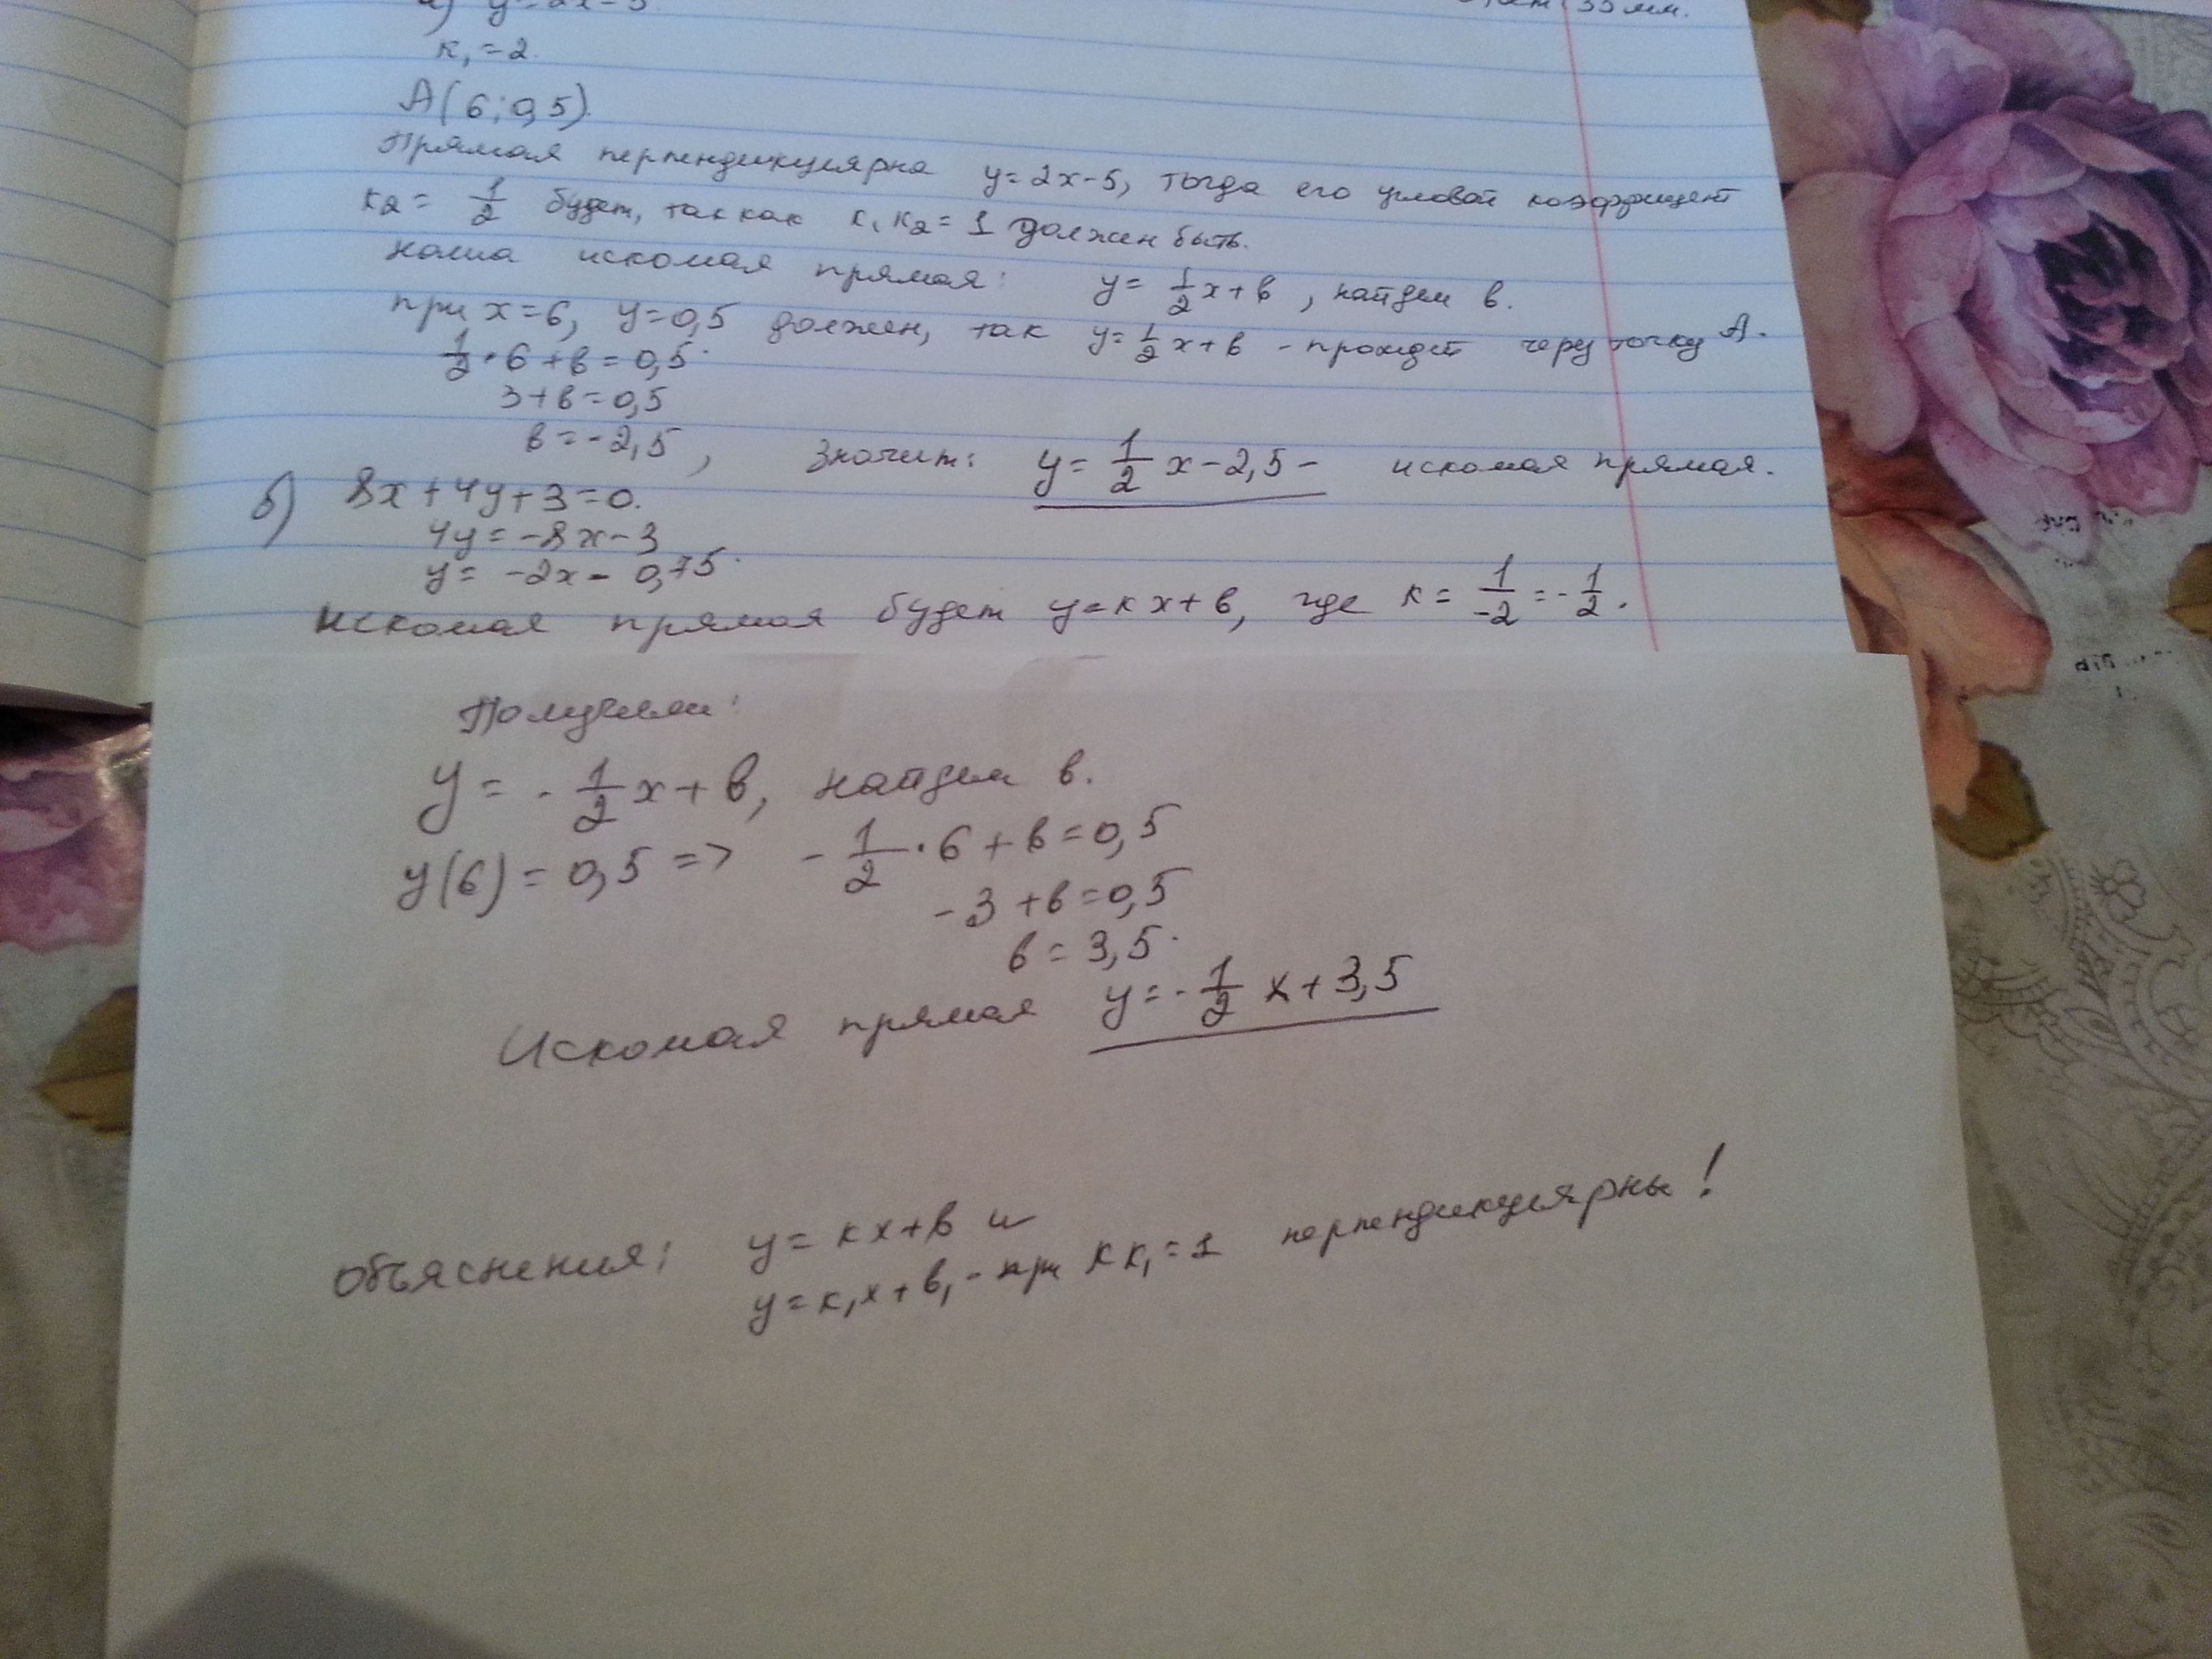 а) y=2x-5
35 мм.
к₁=2.
A(6;0,5).
Прямая перпендикулярна y=2x-5, тогда его угловой коэффициент
к2= 1/2 будет, так как к₁к2=1 должен быть.
наша искомая прямая: y= 1/2 x+в, найдем в.
при x=6, y=0,5 должен, так y=1/2 x+в - проходит через точку A.
1/2·6+в=0,5.
3+в=0,5
в=-2,5, Значит: y= 1/2 x-2,5 - искомая прямая.
б) 8x+4y+3=0.
4y=-8x-3
y= -2x- 0,75.
Искомая прямая будет y=кx+в, где к= 1/-2 =-1/2.
Получим:
y= -1/2 x+в, найдем в.
y(6)=0,5=> -1/2·6+в=0,5
-3+в=0,5
в=3,5.
Искомая прямая y=-1/2 x+3,5
Объяснения: y=кx+в и
y=к₁x+в₁ - при кк₁=1 перпендикулярны!